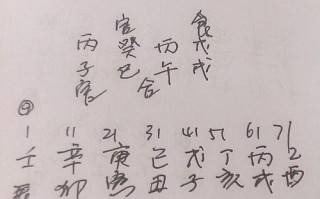 官 食
丙 癸 丙 戊
子 巳 午 戌
官 合
1 11 21 31 41 51 61 71
壬 辛 庚 己 戊 丁 丙 乙
辰 卯 寅 丑 子 亥 戌 酉